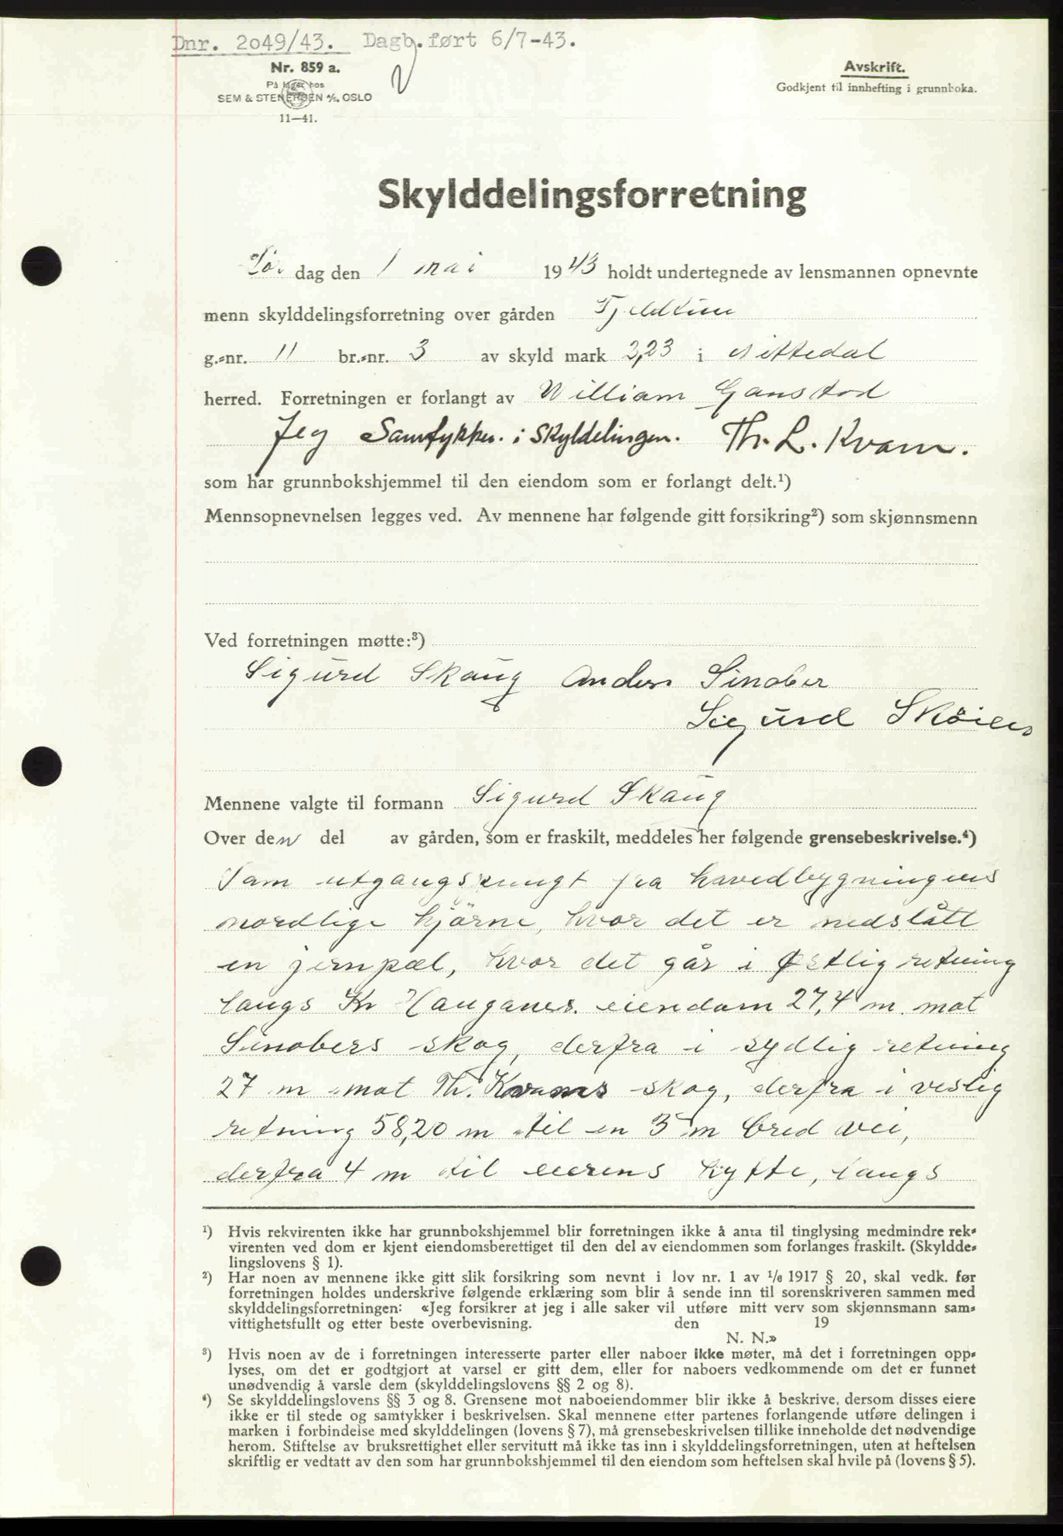 Dnr. 2049/43. Dagb.ført 6/7-43.
Nr. 859 a.
På lager hos
SEM & STENERSEN A/S, OSLO
11—41.
Avskrift.
Godkjent til innhefting i grunnboka.
Skylddelingsforretning
Lør dag den 1 mai 1943 holdt undertegnede av lensmannen opnevnte
menn skylddelingsforretning over gården
g.-nr. 11 br.-nr. 3 av skyld mark 3,23 i Nittedal
herred. Forretningen er forlangt av William Ganstad
Jeg Samtykker i Skyldelingen. Th. L. Kvam.
som har grunnbokshjemmel til den eiendom som er forlangt delt.¹)
Mennsopnevnelsen legges ved. Av mennene har følgende gitt forsikring²) som skjønnsmenn
Ved forretningen møtte:³)
Sigurd Skaug Anders Sinober
Sigurd Skøien
Mennene valgte til formann Sigurd Skaug
Over den del av gården, som er fraskilt, meddeles her følgende grensebeskrivelse.⁴)
Som utgangspungt fra havedbygningens
nordlige hjørne, hvor det er nedslått
en jernpæl, hvor det går i Østlig retning
langs Kr Haugans. eiendom 27,4 m. mot
Sinobers skog, derfra i sydlig retning
27 m mot Th. Kvams skog, derfra i vestlig
retning 58,20 m til en 3 m bred vei,
derfra 4 m til eierens hytte, langs
¹) Hvis rekvirenten ikke har grunnbokshjemmel blir forretningen ikke å anta til tinglysing medmindre rek-
virenten ved dom er kjent eiendomsberettiget til den del av eiendommen som forlanges fraskilt. (Skyldde-
lingslovens § 1).
²) Har noen av mennene ikke gitt slik forsikring som nevnt i lov nr. 1 av 1/6 1917 § 20, skal vedk. før
forretningen holdes underskrive følgende erklæring som blir å sende inn til sorenskriveren sammen med
skylddelingsforretningen: «Jeg forsikrer at jeg i alle saker vil utføre mitt verv som skjønnsmann sam-
vittighetsfullt og etter beste overbevisning. den 19
N. N.»
³) Hvis noen av de i forretningen interesserte parter eller naboer ikke møter, må det i forretningen opp-
lyses, om det er godtgjort at varsel er gitt dem, eller for naboers vedkommende om det er funnet
unødvendig å varsle dem (skylddelingslovens §§ 2 og 8).
⁴) Se skylddelingslovens §§ 3 og 8. Grensene mot naboeiendommer blir ikke å beskrive, dersom disses eiere
ikke er til stede og samtykker i beskrivelsen. Skal mennene etter partenes forlangende utføre delingen i
marken i forbindelse med skylddelingen (lovens § 7), må grensebeskrivelsen tillike inneholde det nødvendige
herom. Stiftelse av bruksrettighet eller servitutt må ikke tas inn i skylddelingsforretningen, uten at heftelsen
skriftlig er vedtatt av den som har grunnbokshjemmel til den eiendom som heftelsen skal hvile på (lovens § 5).